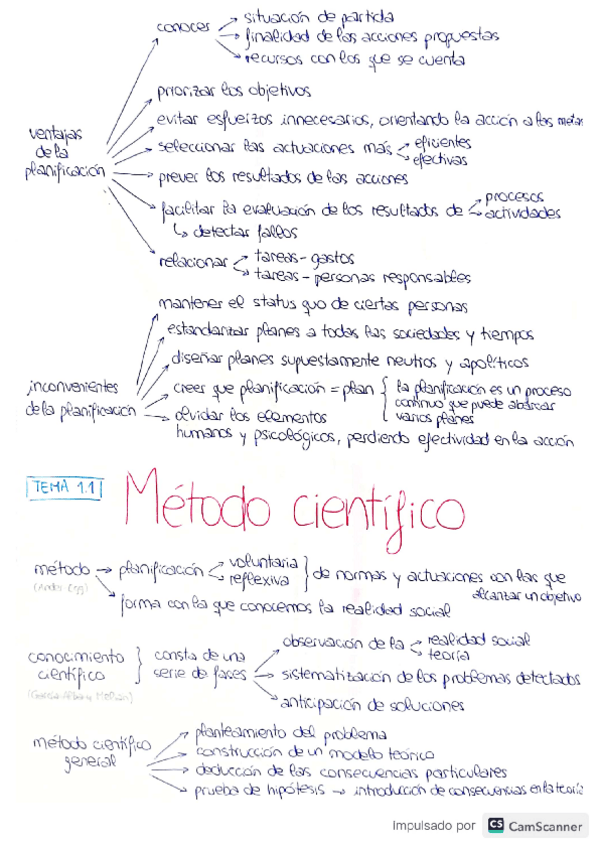 conocer
situación de partida
finalidad de las acciones propuestas
recursos con los que se cuenta
ventajas
de la
planificación
priorizar los objetivos
evitar esfuerzos innecesarios, orientando la acción a las metas
seleccionar las actuaciones más
eficientes
efectivas
prever los resultados de las acciones
facilitar la evaluación de los resultados de
procesos
actividades
detectar fallos
relacionar
tareas - gastos
tareas - personas responsables
inconvenientes
de la planificación
mantener el status quo de ciertas personas
estandarizar planes a todas las sociedades y tiempos
diseñar planes supuestamente neutros y apolíticos
creer que planificación = plan
la planificación es un proceso
continuo que puede abarcar
varios planes
olvidar los elementos
humanos y psicológicos, perdiendo efectividad en la acción
TEMA 1.1
Método científico
método
(Ander Egg)
planificación
voluntaria
reflexiva
de normas y actuaciones con las que
alcanzar un objetivo
forma con la que conocemos la realidad social
conocimiento
científico
consta de una
serie de fases
observación de la
realidad social
teoría
sistematización de los problemas detectados
anticipación de soluciones
método científico
general
planteamiento del problema
construcción de un modelo teórico
deducción de las consecuencias particulares
prueba de hipótesis → introducción de consecuencias en la teoría
Impulsado por CS CamScanner